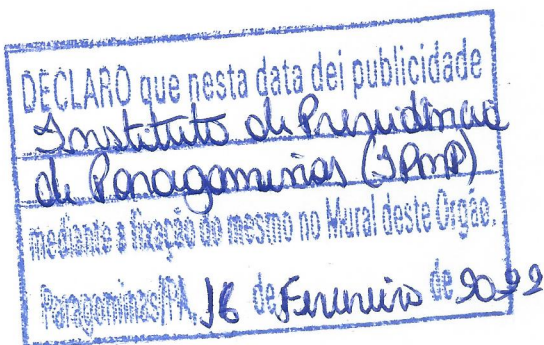 DECLARO que nesta data dei publicidade
Instituto de Previdência
de Paragominas (IPMP)
mediante a fixação do mesmo no Mural deste Orgão.
Paragominas/PA, 16 de Fevereiro de 2022